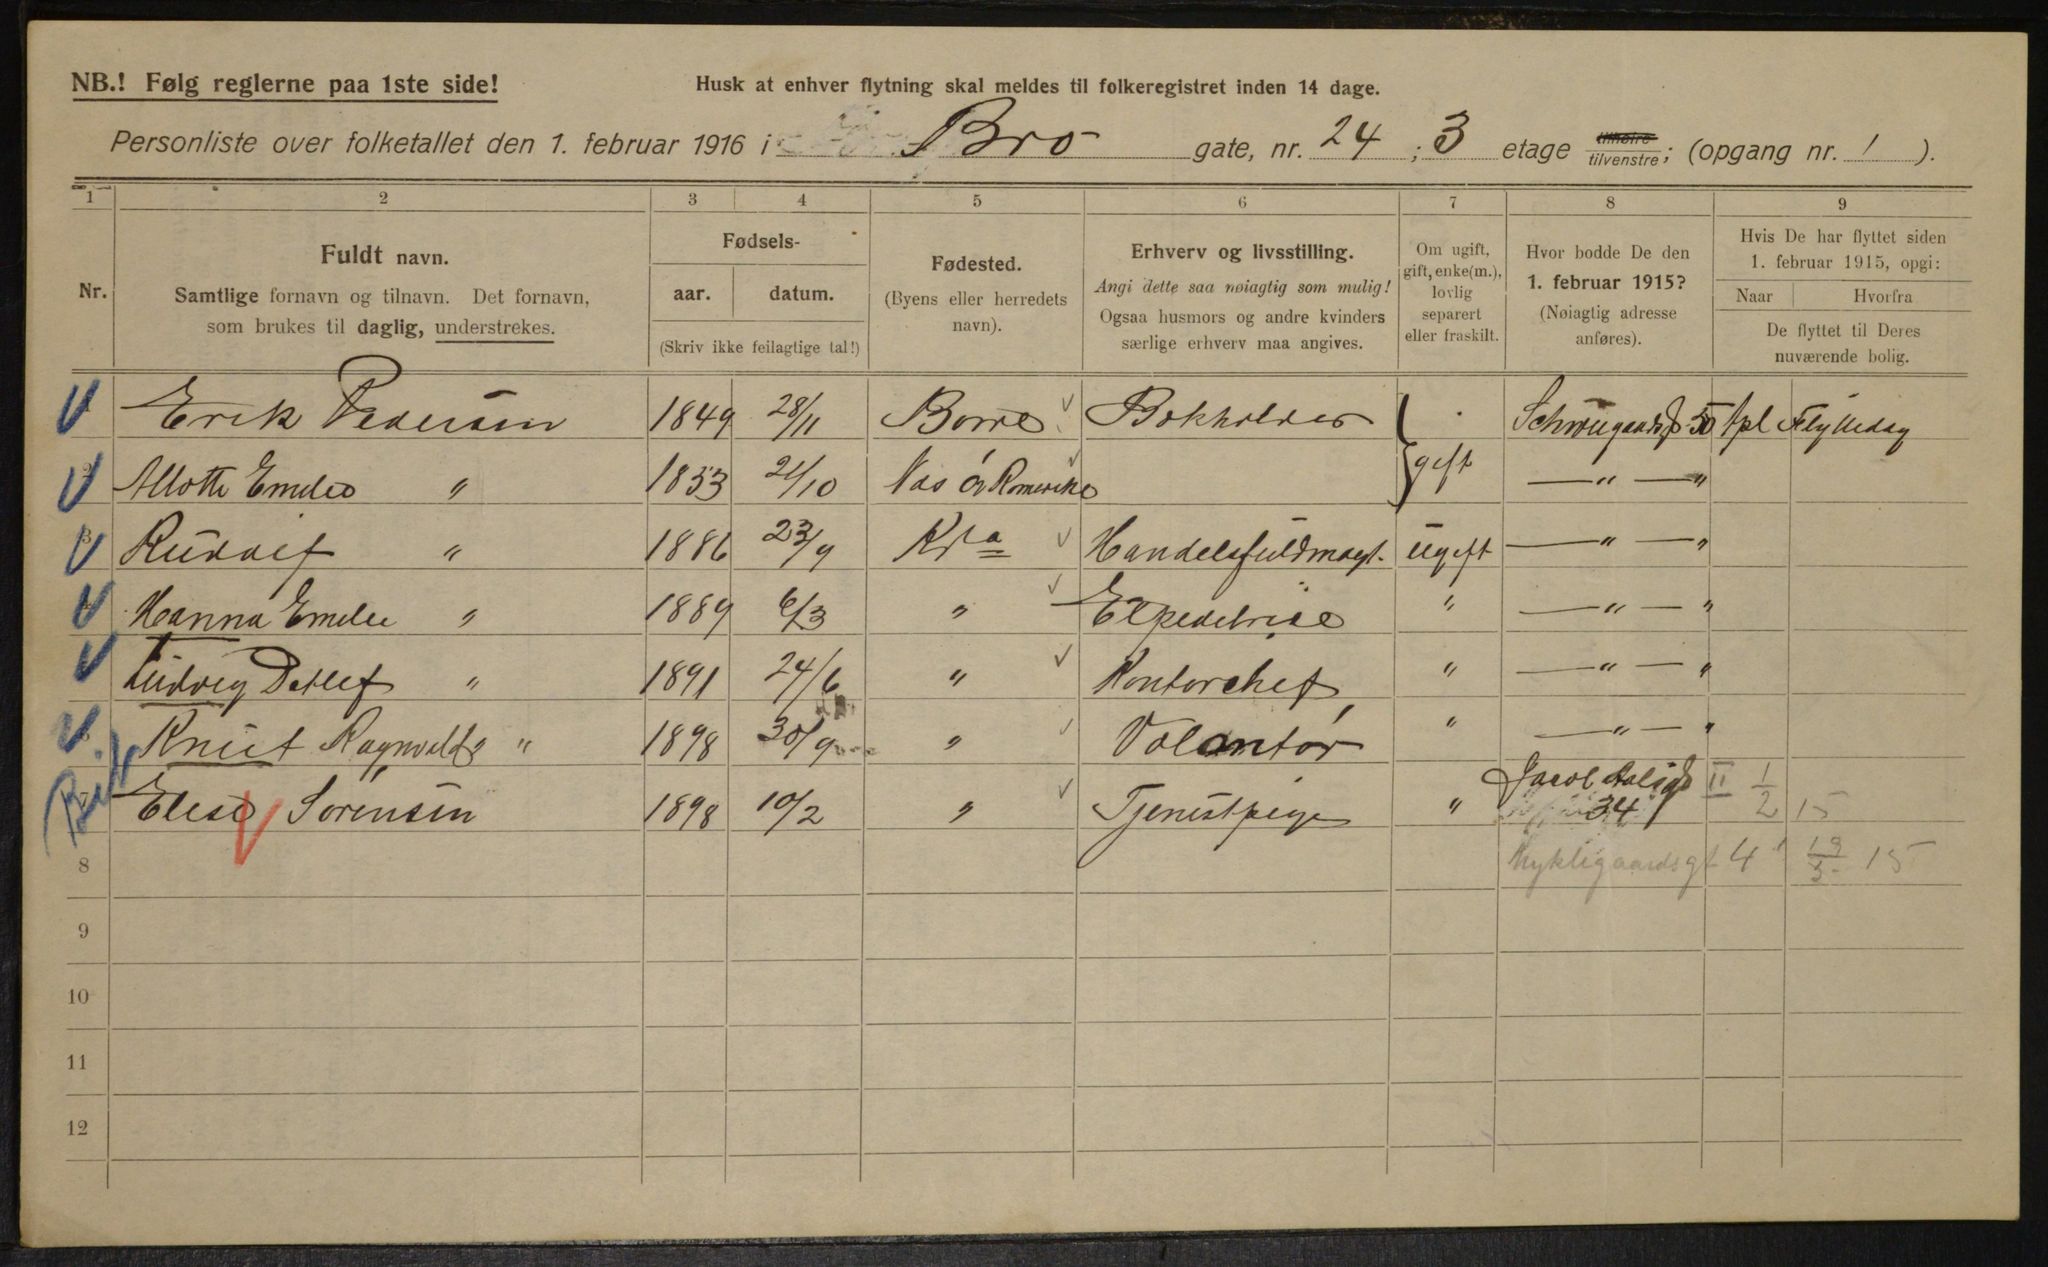 NB.! Følg reglerne paa 1ste side!
Husk at enhver flytning skal meldes til folkeregistret inden 14 dage.
Personliste over folketallet den 1. februar 1916 i Bro gate, nr. 24 ; 3 etage tilhøire / tilvenstre; (opgang nr. 1 ).
1 2 3 4 5 6 7 8 9
Nr.
Fuldt navn.
Samtlige fornavn og tilnavn. Det fornavn,
som brukes til daglig, understrekes.
Fødsels-
aar. datum.
(Skriv ikke feilagtige tal!)
Fødested.
(Byens eller herredets
navn).
Erhverv og livsstilling.
Angi dette saa nøiagtig som mulig!
Ogsaa husmors og andre kvinders
særlige erhverv maa angives.
Om ugift,
gift, enke(m.),
lovlig
separert
eller fraskilt.
Hvor bodde De den
1. februar 1915?
(Nøiagtig adresse
anføres).
Hvis De har flyttet siden
1. februar 1915, opgi:
Naar Hvorfra
De flyttet til Deres
nuværende bolig.
Erik Pedersen 1849 28/11 Borre Bokholder Schweigaardsg. 50 Apl Flyttedag
2 Emelie " 1853 21/10 Nes Øv Romerike } gift — " — "
3 Rudolf " 1886 23/9 Kra Handelsfuldmægt. ugift — " — "
Hanna Emelie " 1889 6/3 " Expeditrise " — " — "
Ludvig Detlef " 1891 24/6 " Kontorchef " — " — "
Knut Ragnvald " 1898 30/9 " Volontør " — " — "
Elise Sørensen 1898 10/2 " Tjenestpige " Jacob Aalsgt 34 II 1/2 15
8 Nykligaardsgt 4 19/3 15
9
10
11
12